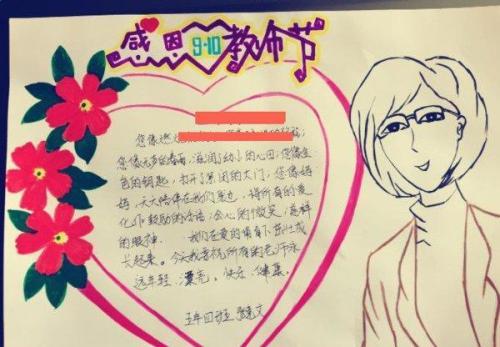 感恩 9·10 教师节
您像
您像无声的春雨,滋润了幼小的心田;您像金
色的钥匙,打开了思闭的大门;您像妈
妈,天天陪伴在我们身边,将所有的爱
化作鼓励的话语,会心的微笑,
的眼神。 我们在爱的
长起来。今天我要祝所有的老师永
远年轻、漂亮、快乐、健康。
五年四班